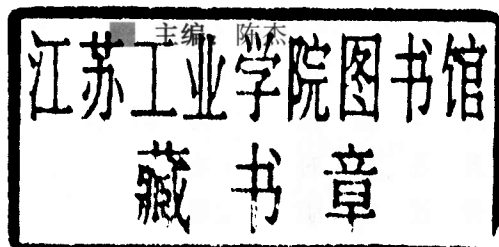 主编 陈杰
江苏工业学院图书馆
藏书章